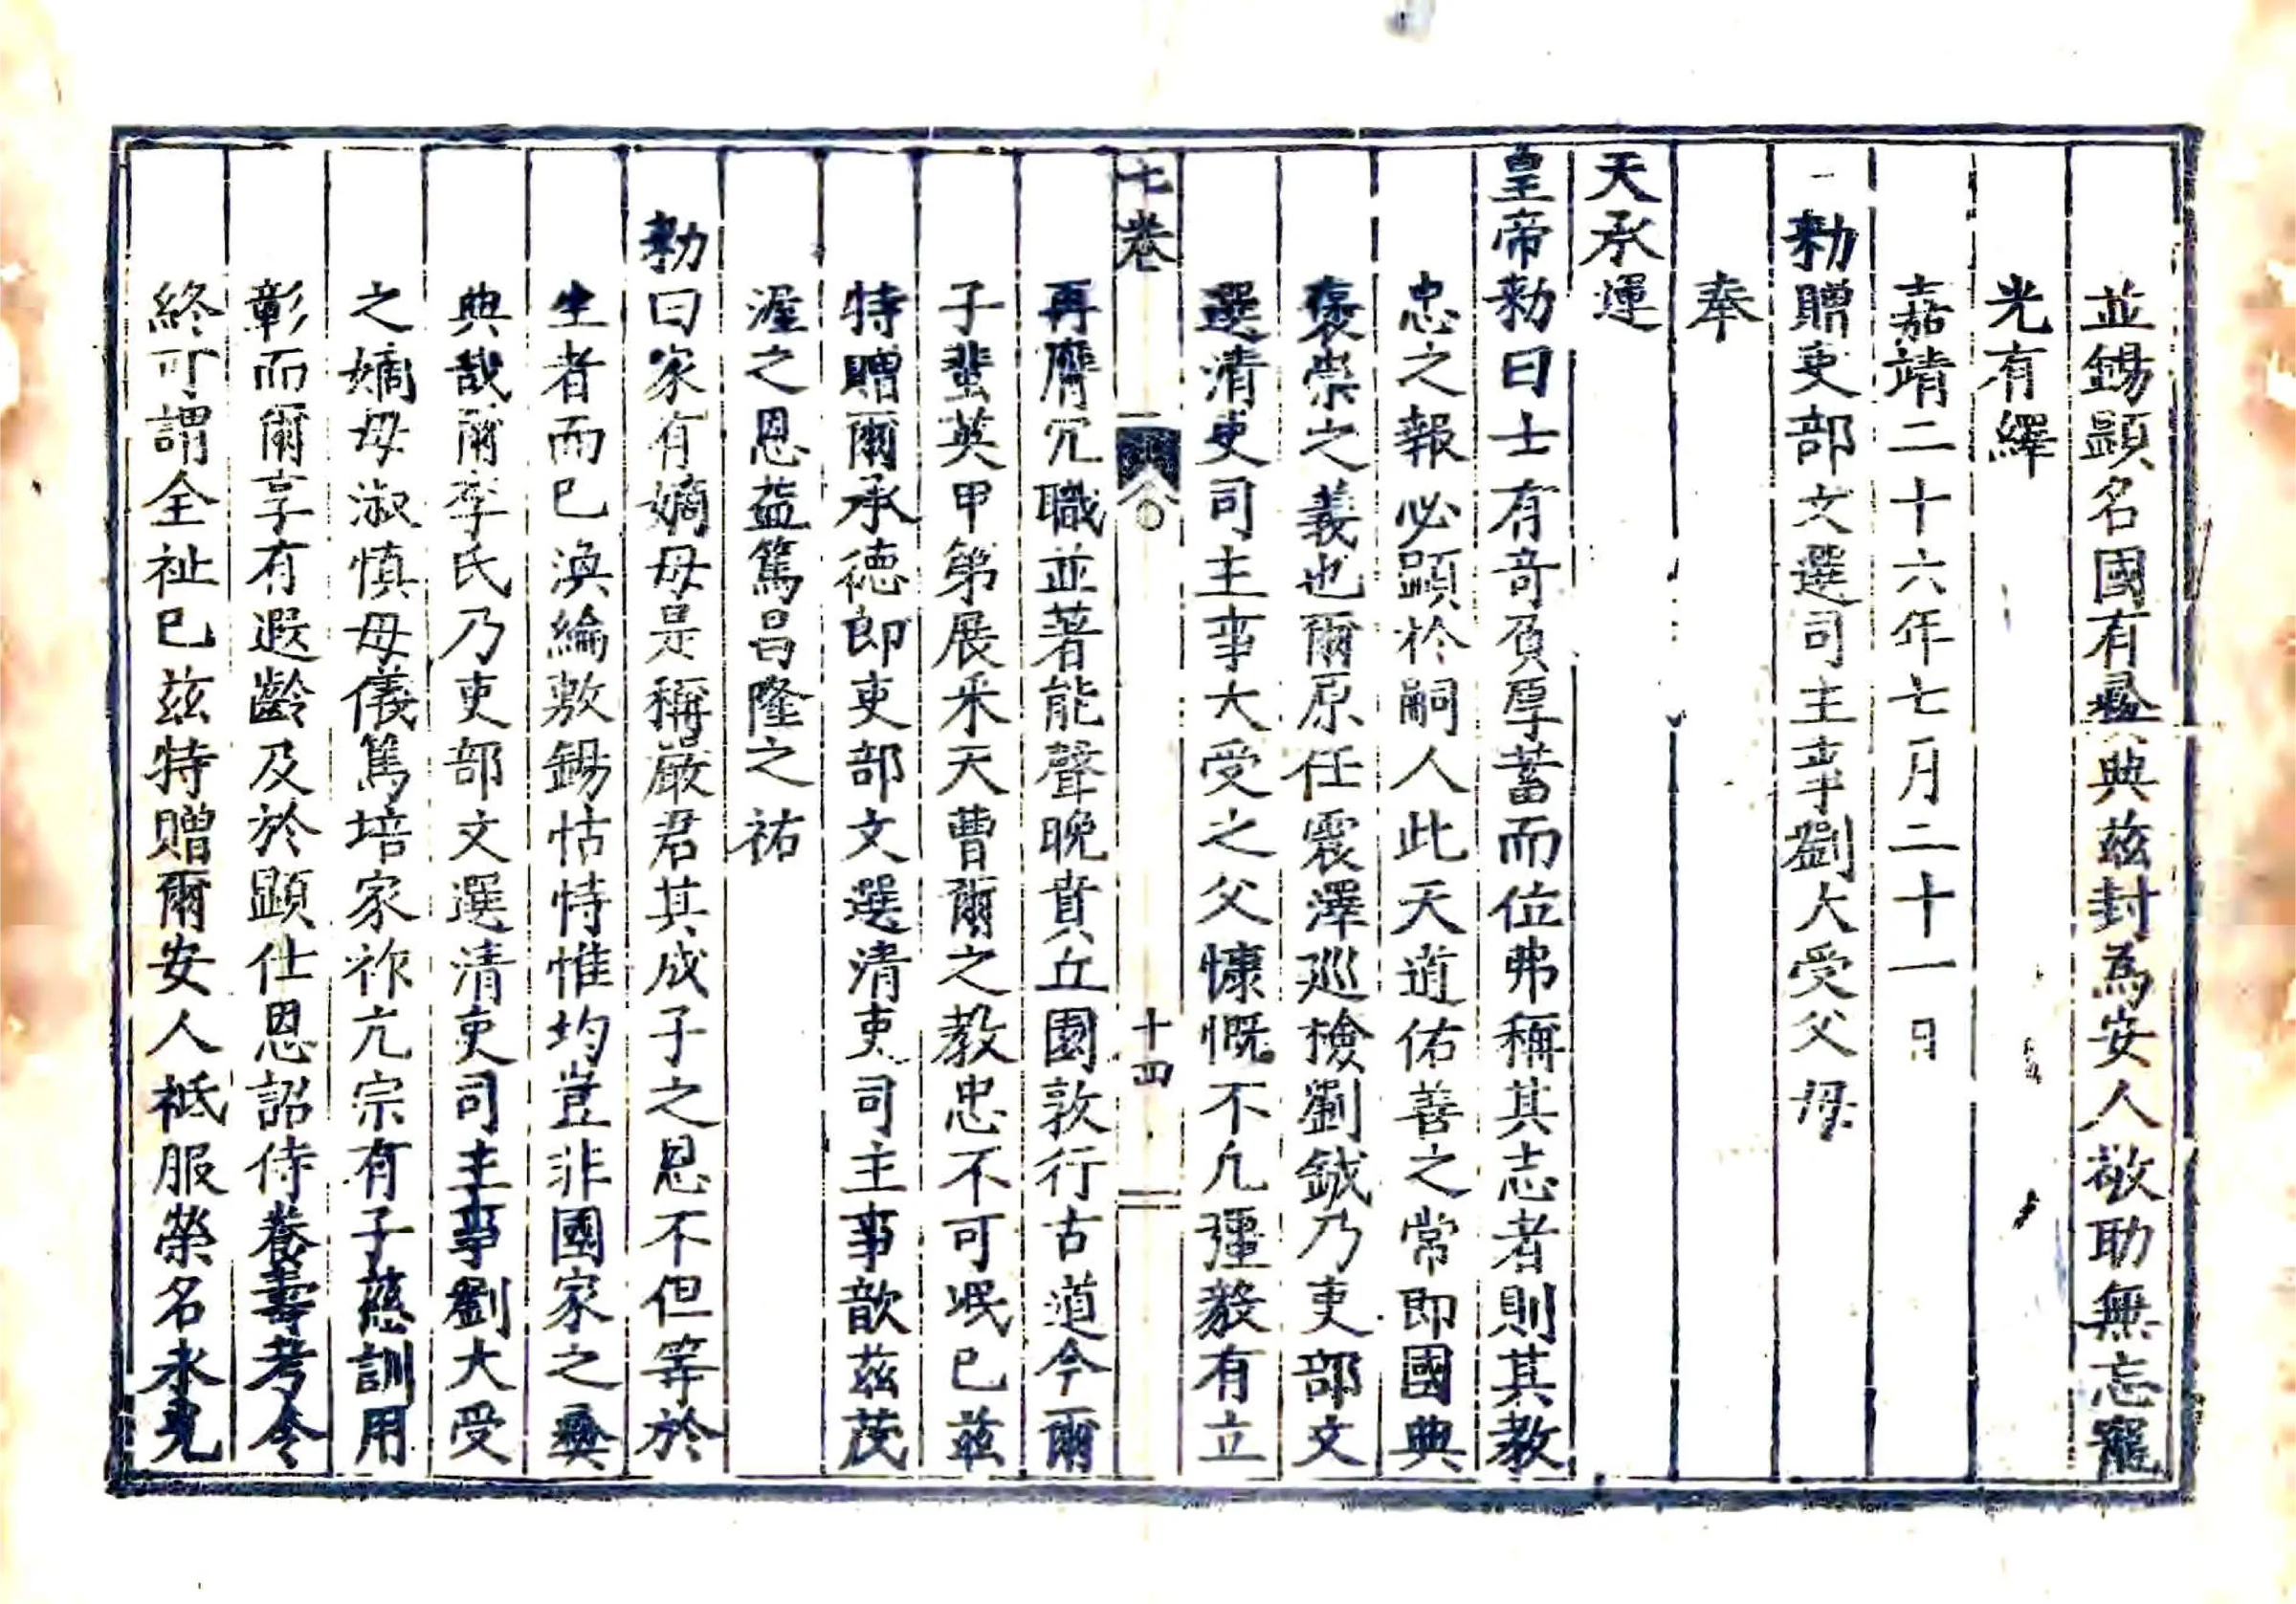 並錫顕名國有彜典茲封為安人敬助無忘寵
光有繹
嘉靖二十六年七月二十一日
一勑贈吏部文選司主事劉大受父母
奉
天承運
皇帝勑曰士有奇負厚蓄而位弗稱其志者則其教
忠之報必顕於嗣人此天道佑善之常即國典
褒崇之義也爾原任震澤巡檢劉鉞乃吏部文
選清吏司主事大受之父慷慨不凢彊毅有立
七卷
十四
再膺冗職並著能聲晚賁丘園敦行古道今爾
子蜚英甲第展釆天曹爾之教忠不可冺已茲
特贈爾承徳郎吏部文選清吏司主事歆茲茂
渥之恩益篤昌隆之祐
勑曰家有嫡母是稱嚴君其成子之恩不但等於
生者而已渙綸敷錫怙恃惟均豈非國家之彜
典哉爾李氏乃吏部文選清吏司主事劉大受
之嫡母淑慎母儀篤培家祚亢宗有子慈訓用
彰而爾享有遐齡及於顕仕恩詔侍養壽考令
終可謂全祉已茲特贈爾安人祗服榮名永光